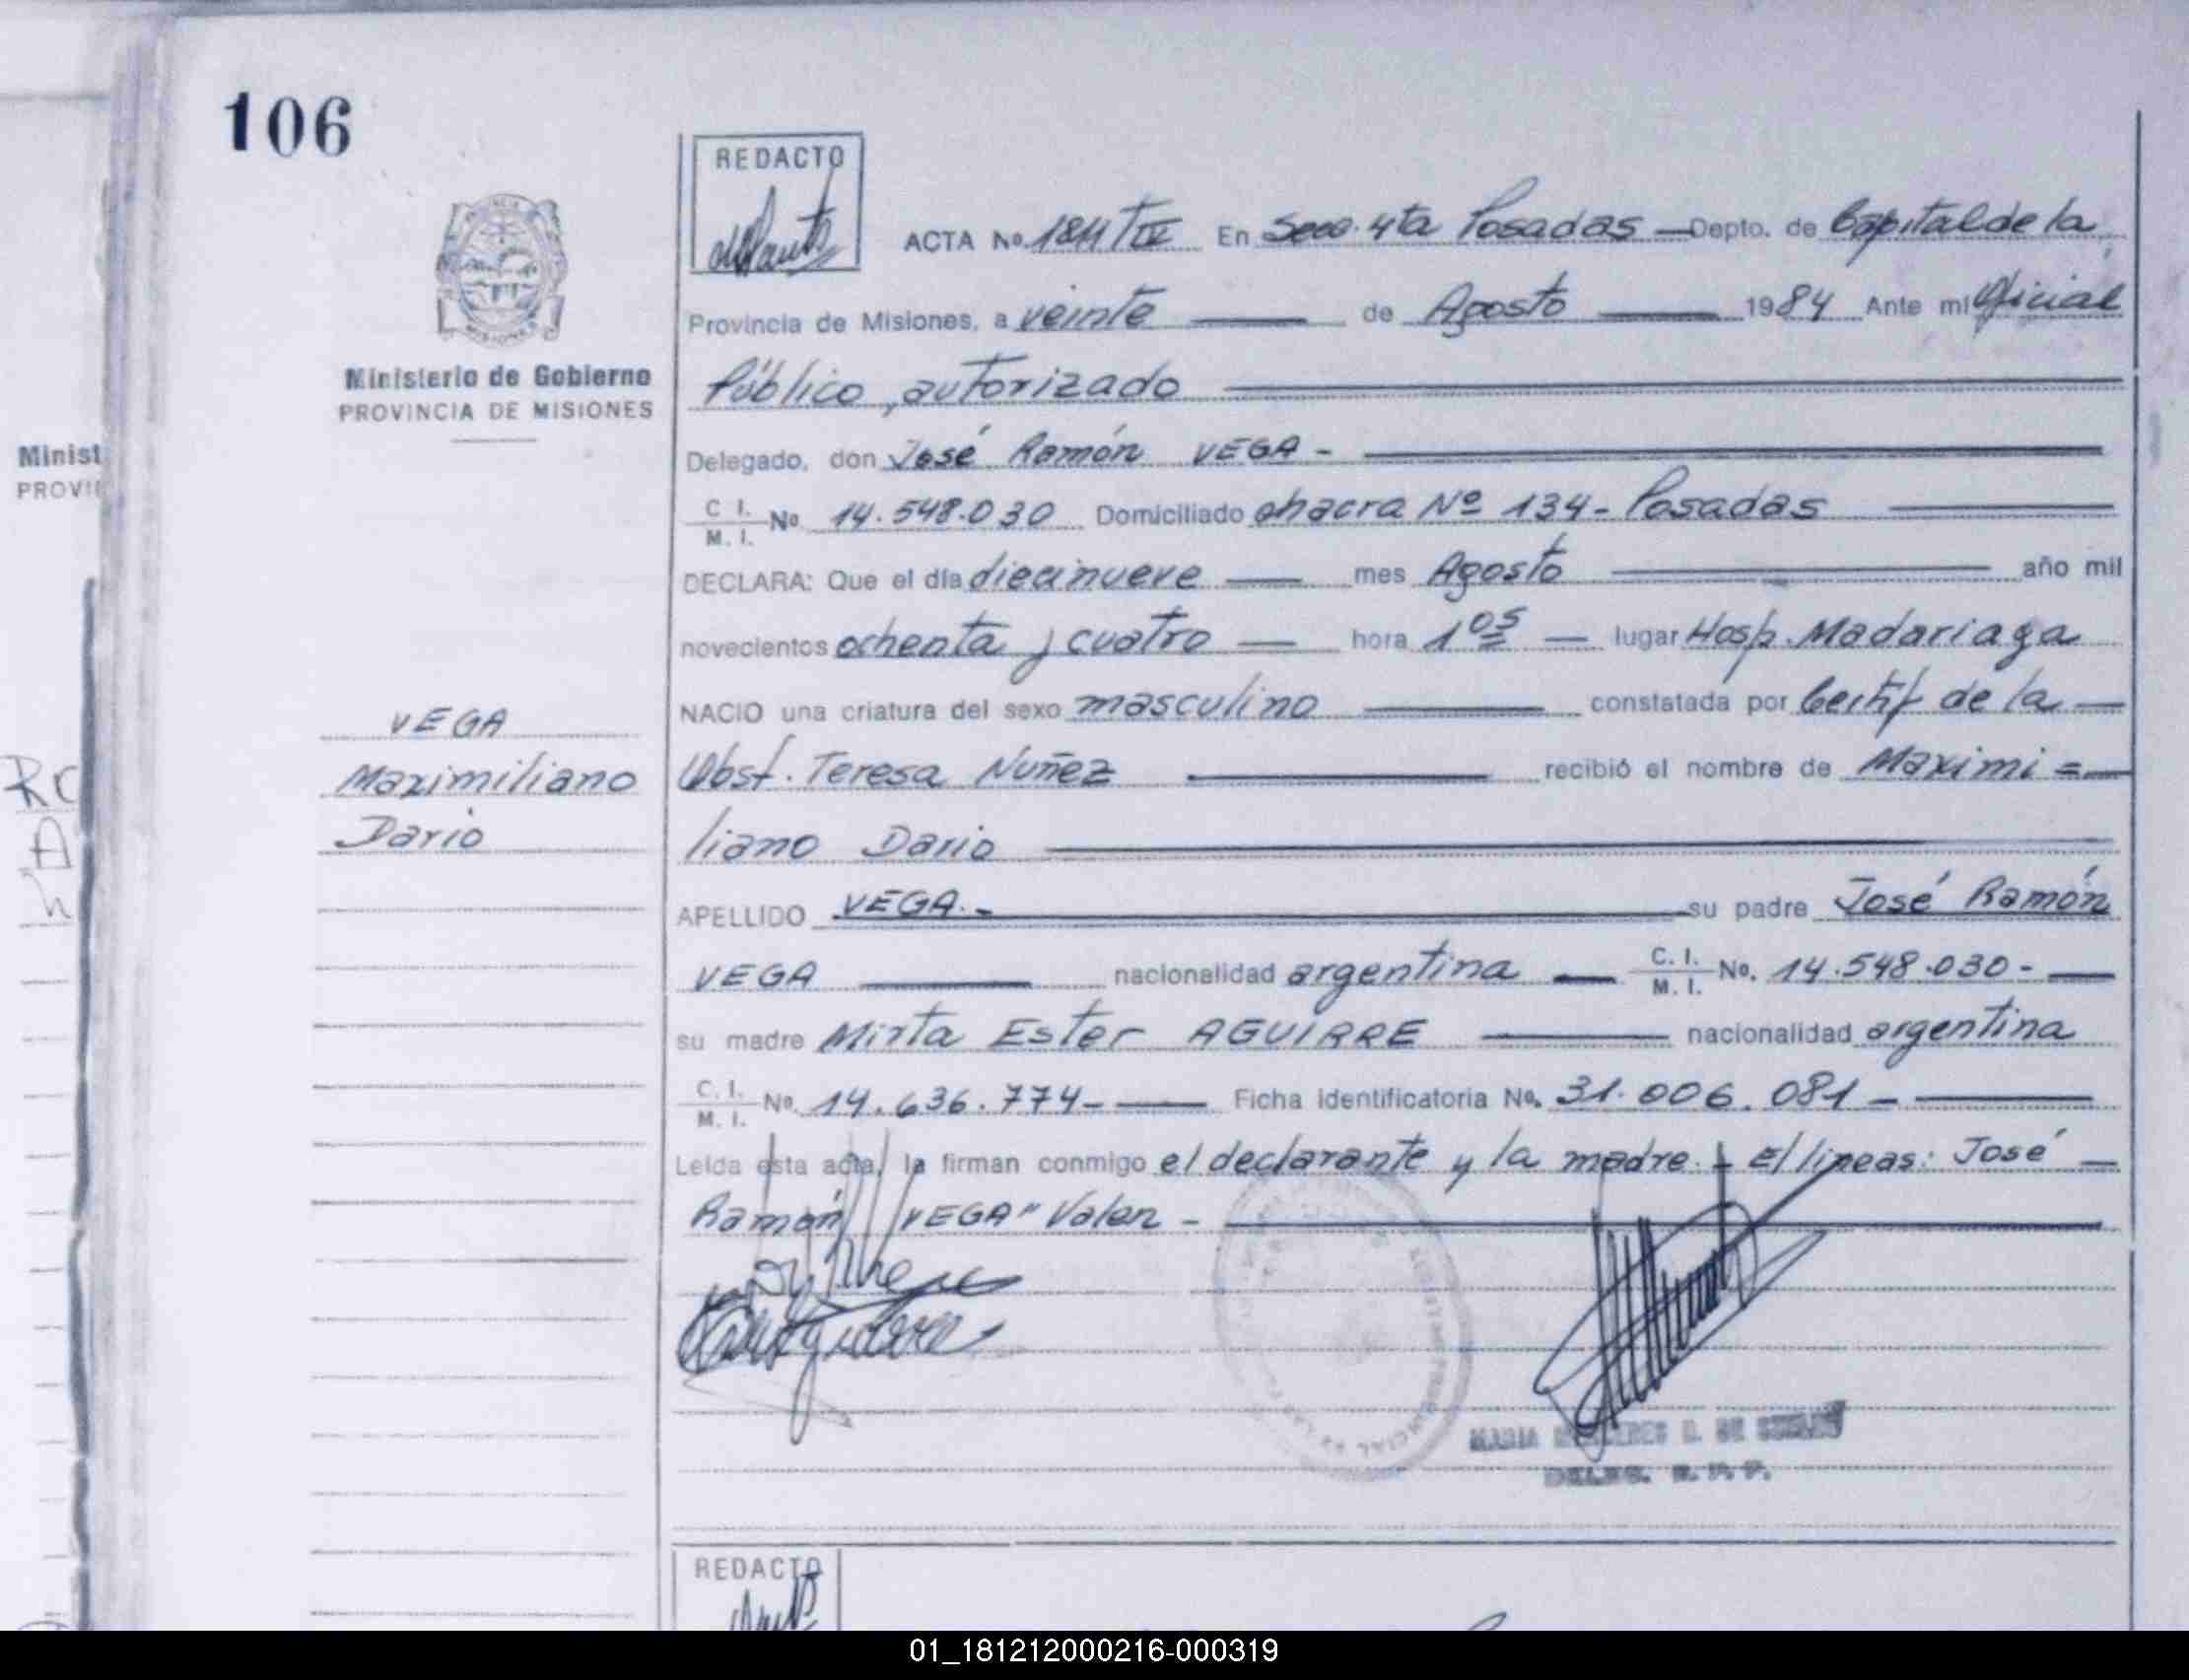 106
REDACTO
ACTA No. 1811 TIV En Secc. 4ta Posadas — Depto. de Capital de la
Provincia de Misiones, a veinte — de Agosto — 1984 Ante mi Oficial
Ministerio de Gobierno
PROVINCIA DE MISIONES
Público, autorizado
Minist
PROVI
Delegado, don José Ramón VEGA -
C. I. M. I. No. 14.548.030 Domiciliado chacra Nº 134 - Posadas
DECLARA: Que el día diecinueve — mes Agosto — año mil
novecientos ochenta y cuatro — hora 1 05 — lugar Hosp. Madariaga
NACIO una criatura del sexo masculino — constatada por Certif de la —
VEGA
Maximiliano
Dario
Obst. Teresa Nuñez — recibió el nombre de Maximi =
liano Dario
APELLIDO VEGA. - su padre José Ramón
VEGA — nacionalidad argentina — C. I. M. I. No. 14.548.030 -
su madre Mirta Ester AGUIRRE — nacionalidad argentina
C. I. M. I. No. 14.636.774 - Ficha identificatoria No. 31.006.081 -
Leída esta acta, la firman conmigo el declarante y la madre. - E/ líneas: José —
Ramón VEGA" Valen -
MARIA D. DE
DELEG. R. P. P.
REDACTO
01_181212000216-000319